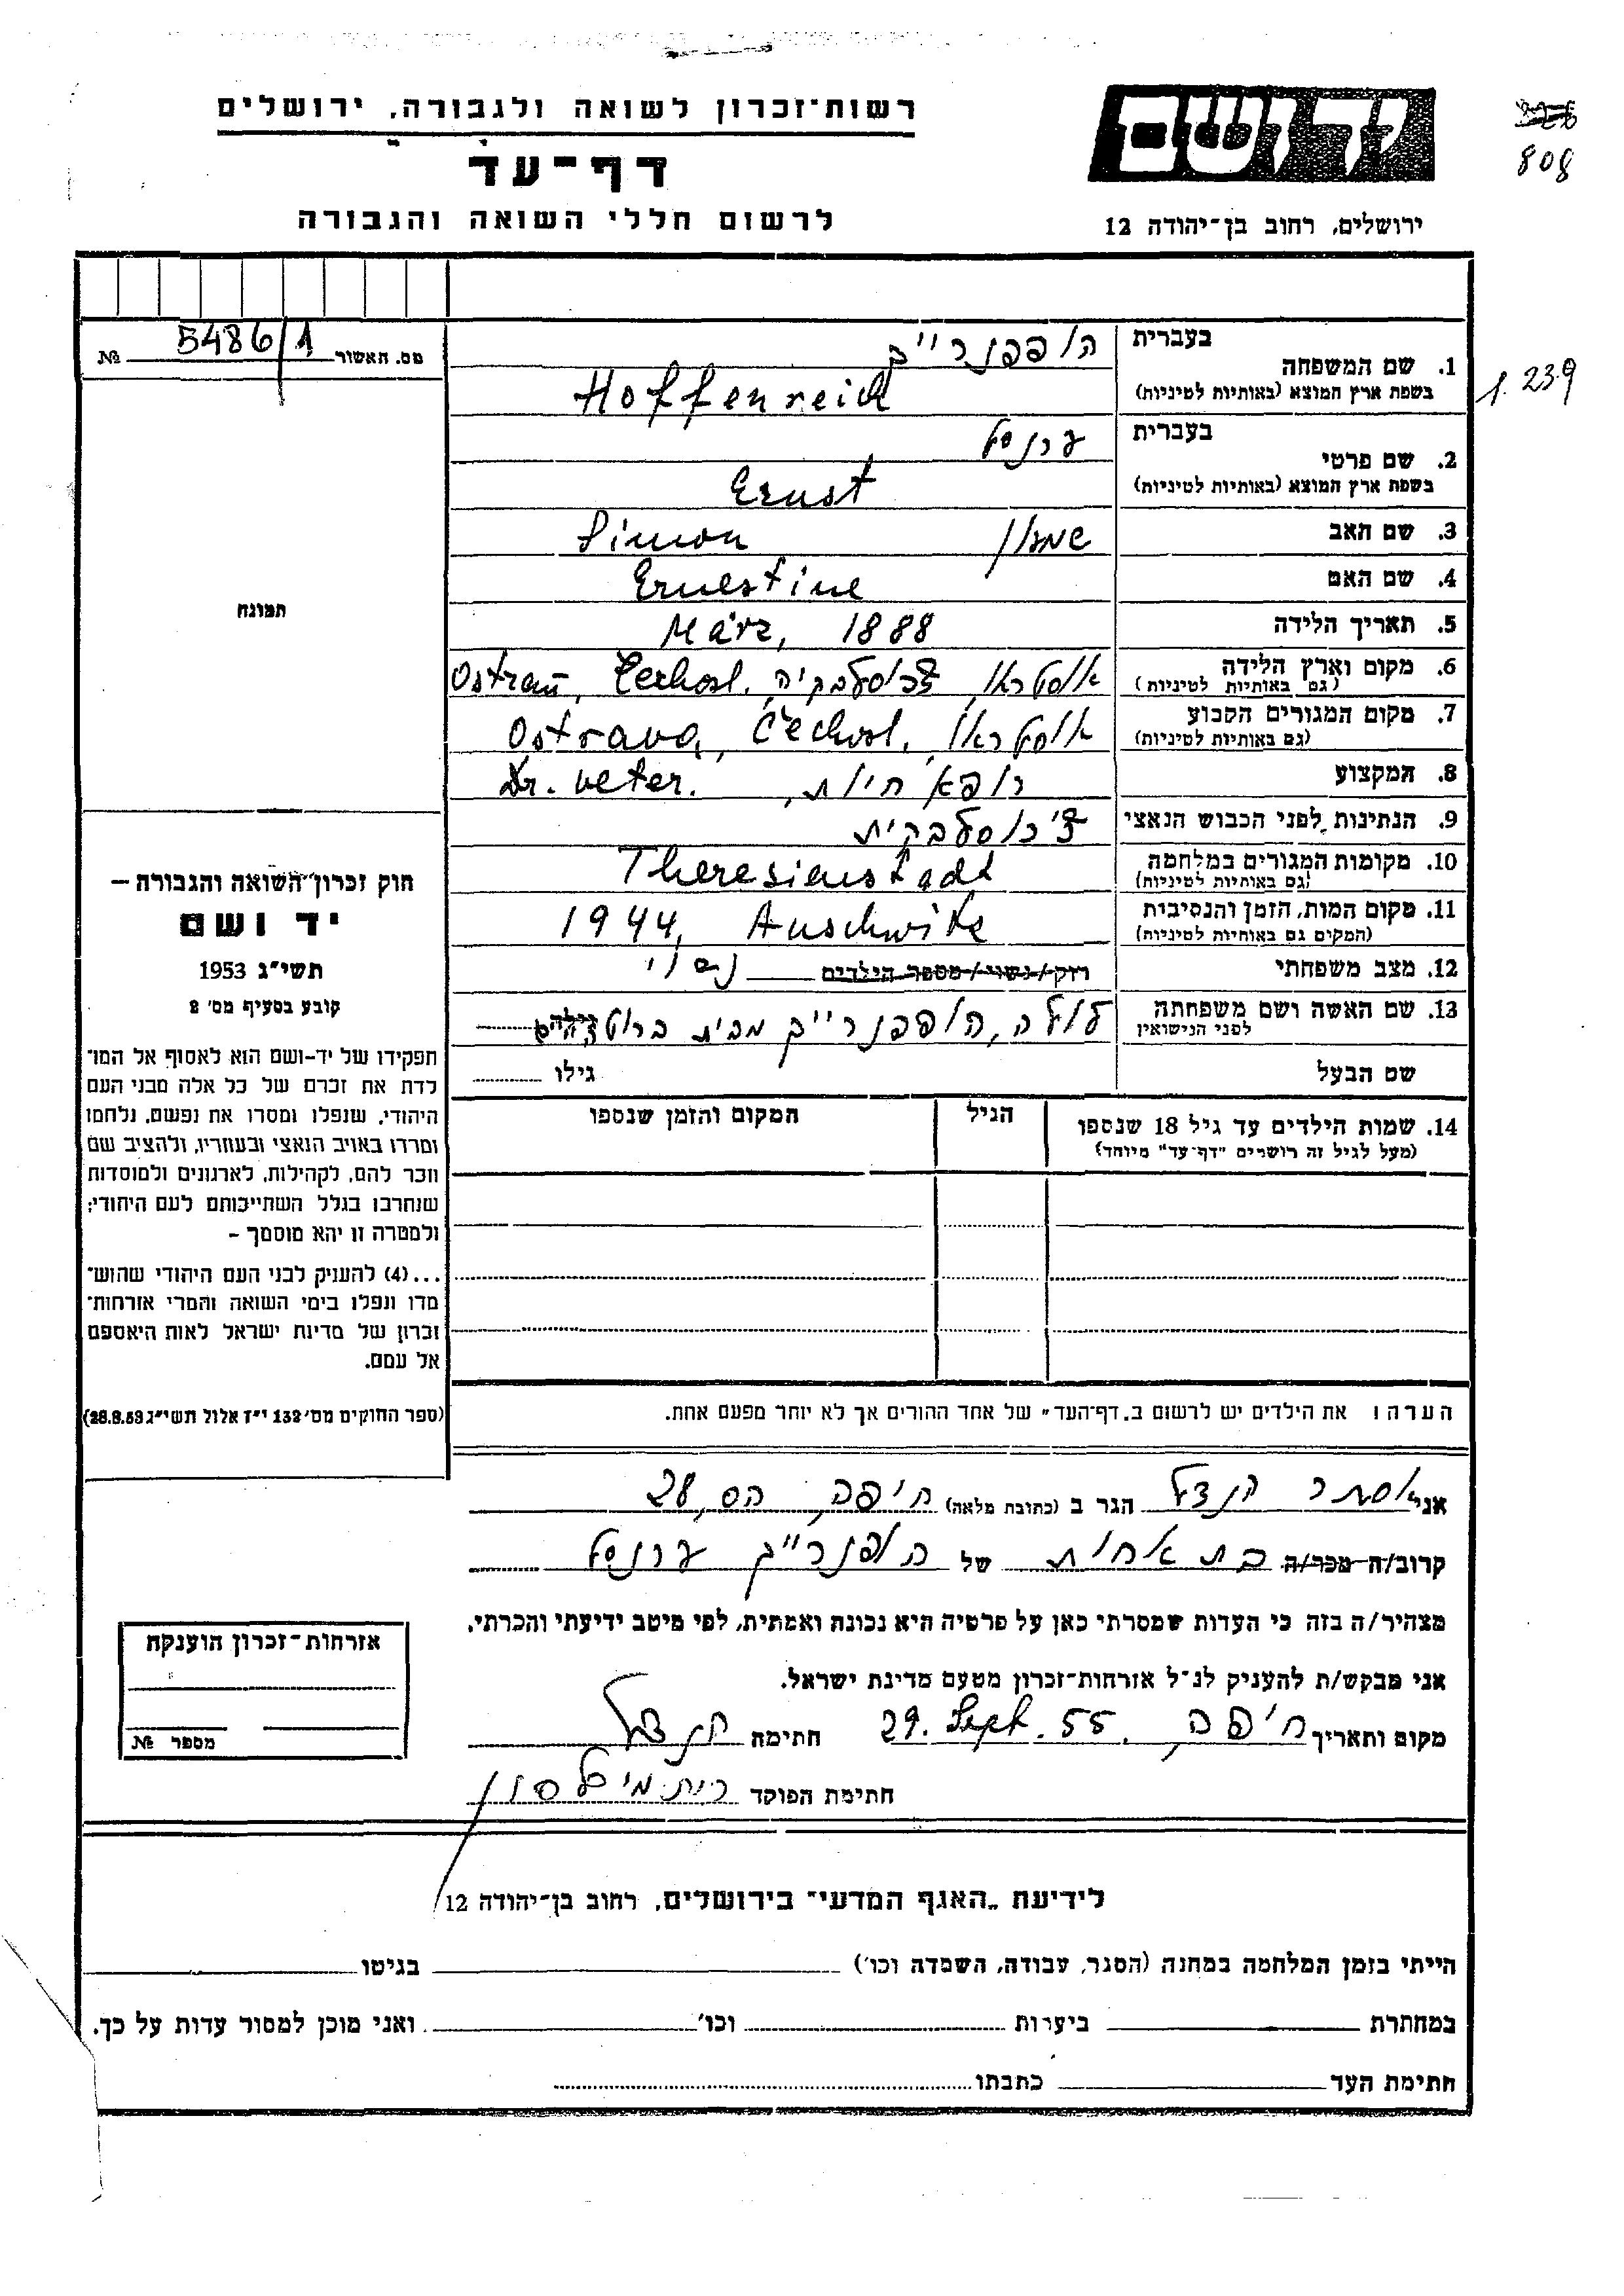 רשות־זכרון לשואה ולגבורה, ירושלים
דף־עד
לרשום חללי השואה והגבורה
יד ושם
ירושלים, רחוב בן־יהודה 12
808
מס. האשור № 5486/1
1.239
1. שם המשפחה
בעברית הופפנרייך
בשפת ארץ המוצא (באותיות לטיניות) Hoffenreich
2. שם פרטי
בעברית ערנסט
בשפת ארץ המוצא (באותיות לטיניות) Ernst
3. שם האב שמעון Simon
4. שם האם Ernestine
5. תאריך הלידה März, 1888
6. מקום וארץ הלידה
(גם באותיות לטיניות)
7. מקום המגורים הקבוע Ostrava, Čechosl.
(גם באותיות לטיניות)
8. המקצוע רופא חיות, Dr. veter.
9. הנתינות לפני הכבוש הנאצי
10. מקומות המגורים במלחמה Theresienstadt
(גם באותיות לטיניות)
11. מקום המות, הזמן והנסיבות 1944, Auschwitz
(המקים גם באותיות לטיניות)
12. מצב משפחתי רווק/נשוי/מספר הילדים נשוי
13. שם האשה ושם משפחתה
לפני הנישואין
הופפנרייך מבית
שם הבעל
גילו
14. שמות הילדים עד גיל 18 שנספו
(מעל לגיל זה רושמים "דף־עד" מיוחד)
הגיל
המקום והזמן שנספו
הערה: את הילדים יש לרשום ב„דף־העד" של אחד ההורים אך לא יותר מפעם אחת.
תמונה
חוק זכרון השואה והגבורה –
יד ושם
תשי"ג 1953
קובע בסעיף מס' 2
תפקידו של יד-ושם הוא לאסוף אל המו־
לדת את זכרם של כל אלה מבני העם
היהודי, שנפלו ומסרו את נפשם, נלחמו
ומרדו באויב הנאצי ובעוזריו, ולהציב שם
וזכר להם, לקהילות, לארגונים ולמוסדות
שנחרבו בגלל השתייכותם לעם היהודי;
ולמטרה זו יהא מוסמך –
...(4) להעניק לבני העם היהודי שהוש־
מדו ונפלו בימי השואה והמרי אזרחות־
זכרון של מדינת ישראל לאות היאספם
אל עמם.
(ספר החוקים מס' 132 י"ז אלול תשי"ג 28.8.53)
אני אסתר הנדל הגר ב (כתובת מלאה) חיפה, הס 28
קרוב/ה מכר/ה בת אחות של הופנרייך ערנסט
מצהיר/ה בזה כי העדות שמסרתי כאן על פרטיה היא נכונה ואמתית, לפי מיטב ידיעתי והכרתי.
אני מבקש/ת להעניק לנ"ל אזרחות־זכרון מטעם מדינת ישראל.
מקום ותאריך חיפה, 29. Sept. 55 חתימה הנדל
חתימת הפוקד
אזרחות־זכרון הוענקה
מספר №
לידיעת „האגף המדעי" בירושלים, רחוב בן־יהודה 12
הייתי בזמן המלחמה במחנה (הסגר, עבודה, השמדה וכו') בגיטו
במחתרת ביערות וכו' ואני מוכן למסור עדות על כך.
חתימת העד כתבתו